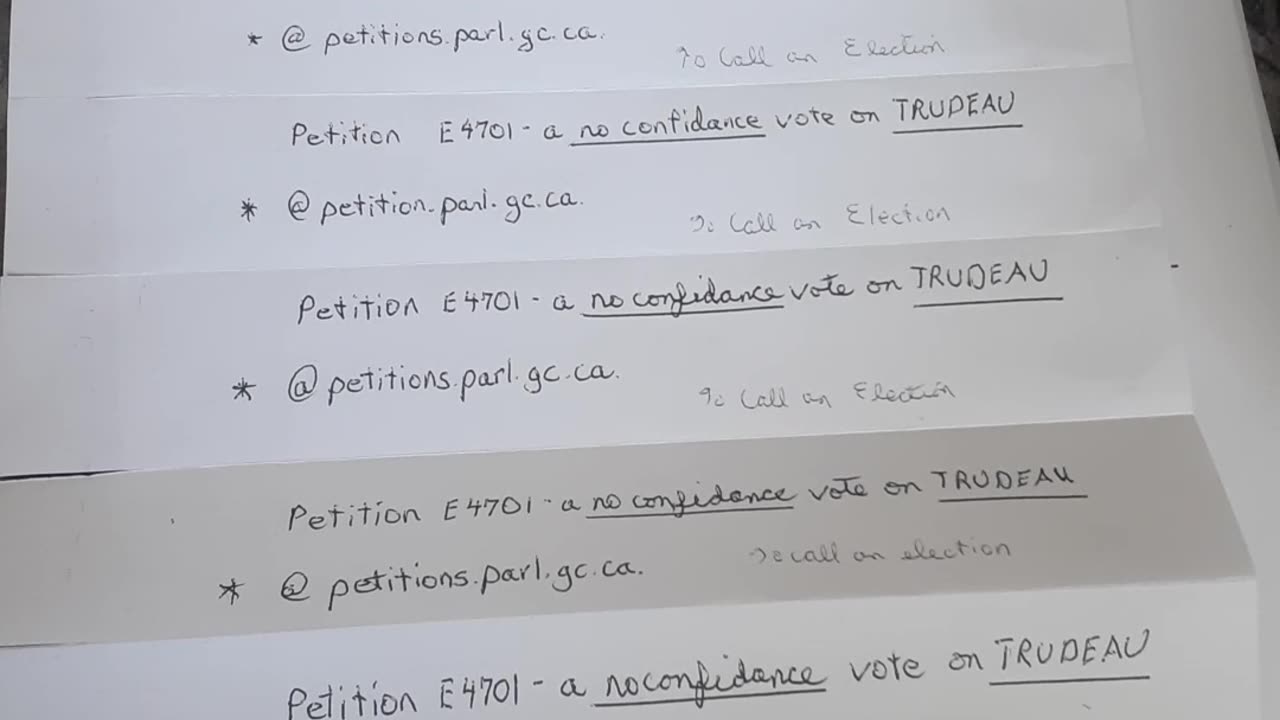 * @ petitions.parl.gc.ca.
To Call an Election
Petition E4701 - a no confidance vote on TRUDEAU
* @ petition.parl.gc.ca.
To Call an Election
Petition E4701 - a no confidance vote on TRUDEAU
* @ petitions.parl.gc.ca.
To Call an Election
Petition E4701 - a no confidance vote on TRUDEAU
* @ petitions.parl.gc.ca.
To call an election
Petition E4701 - a no confidance vote on TRUDEAU